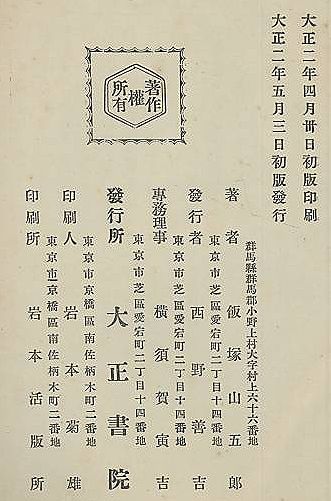 大正二年四月卅日初版印刷
大正二年五月三日初版發行
著作權所有
群馬縣群馬郡小野上村大字村上六十六番地
著者 飯塚山五郎
東京市芝區愛宕町二丁目十四番地
發行者 西野善吉
東京市芝區愛宕町二丁目十四番地
專務理事 橫須賀寅吉
東京市芝區愛宕町二丁目十四番地
發行所 大正書院
東京市京橋區南佐柄木町二番地
印刷人 岩本菊雄
東京市京橋區南佐柄木町二番地
印刷所 岩本活版所